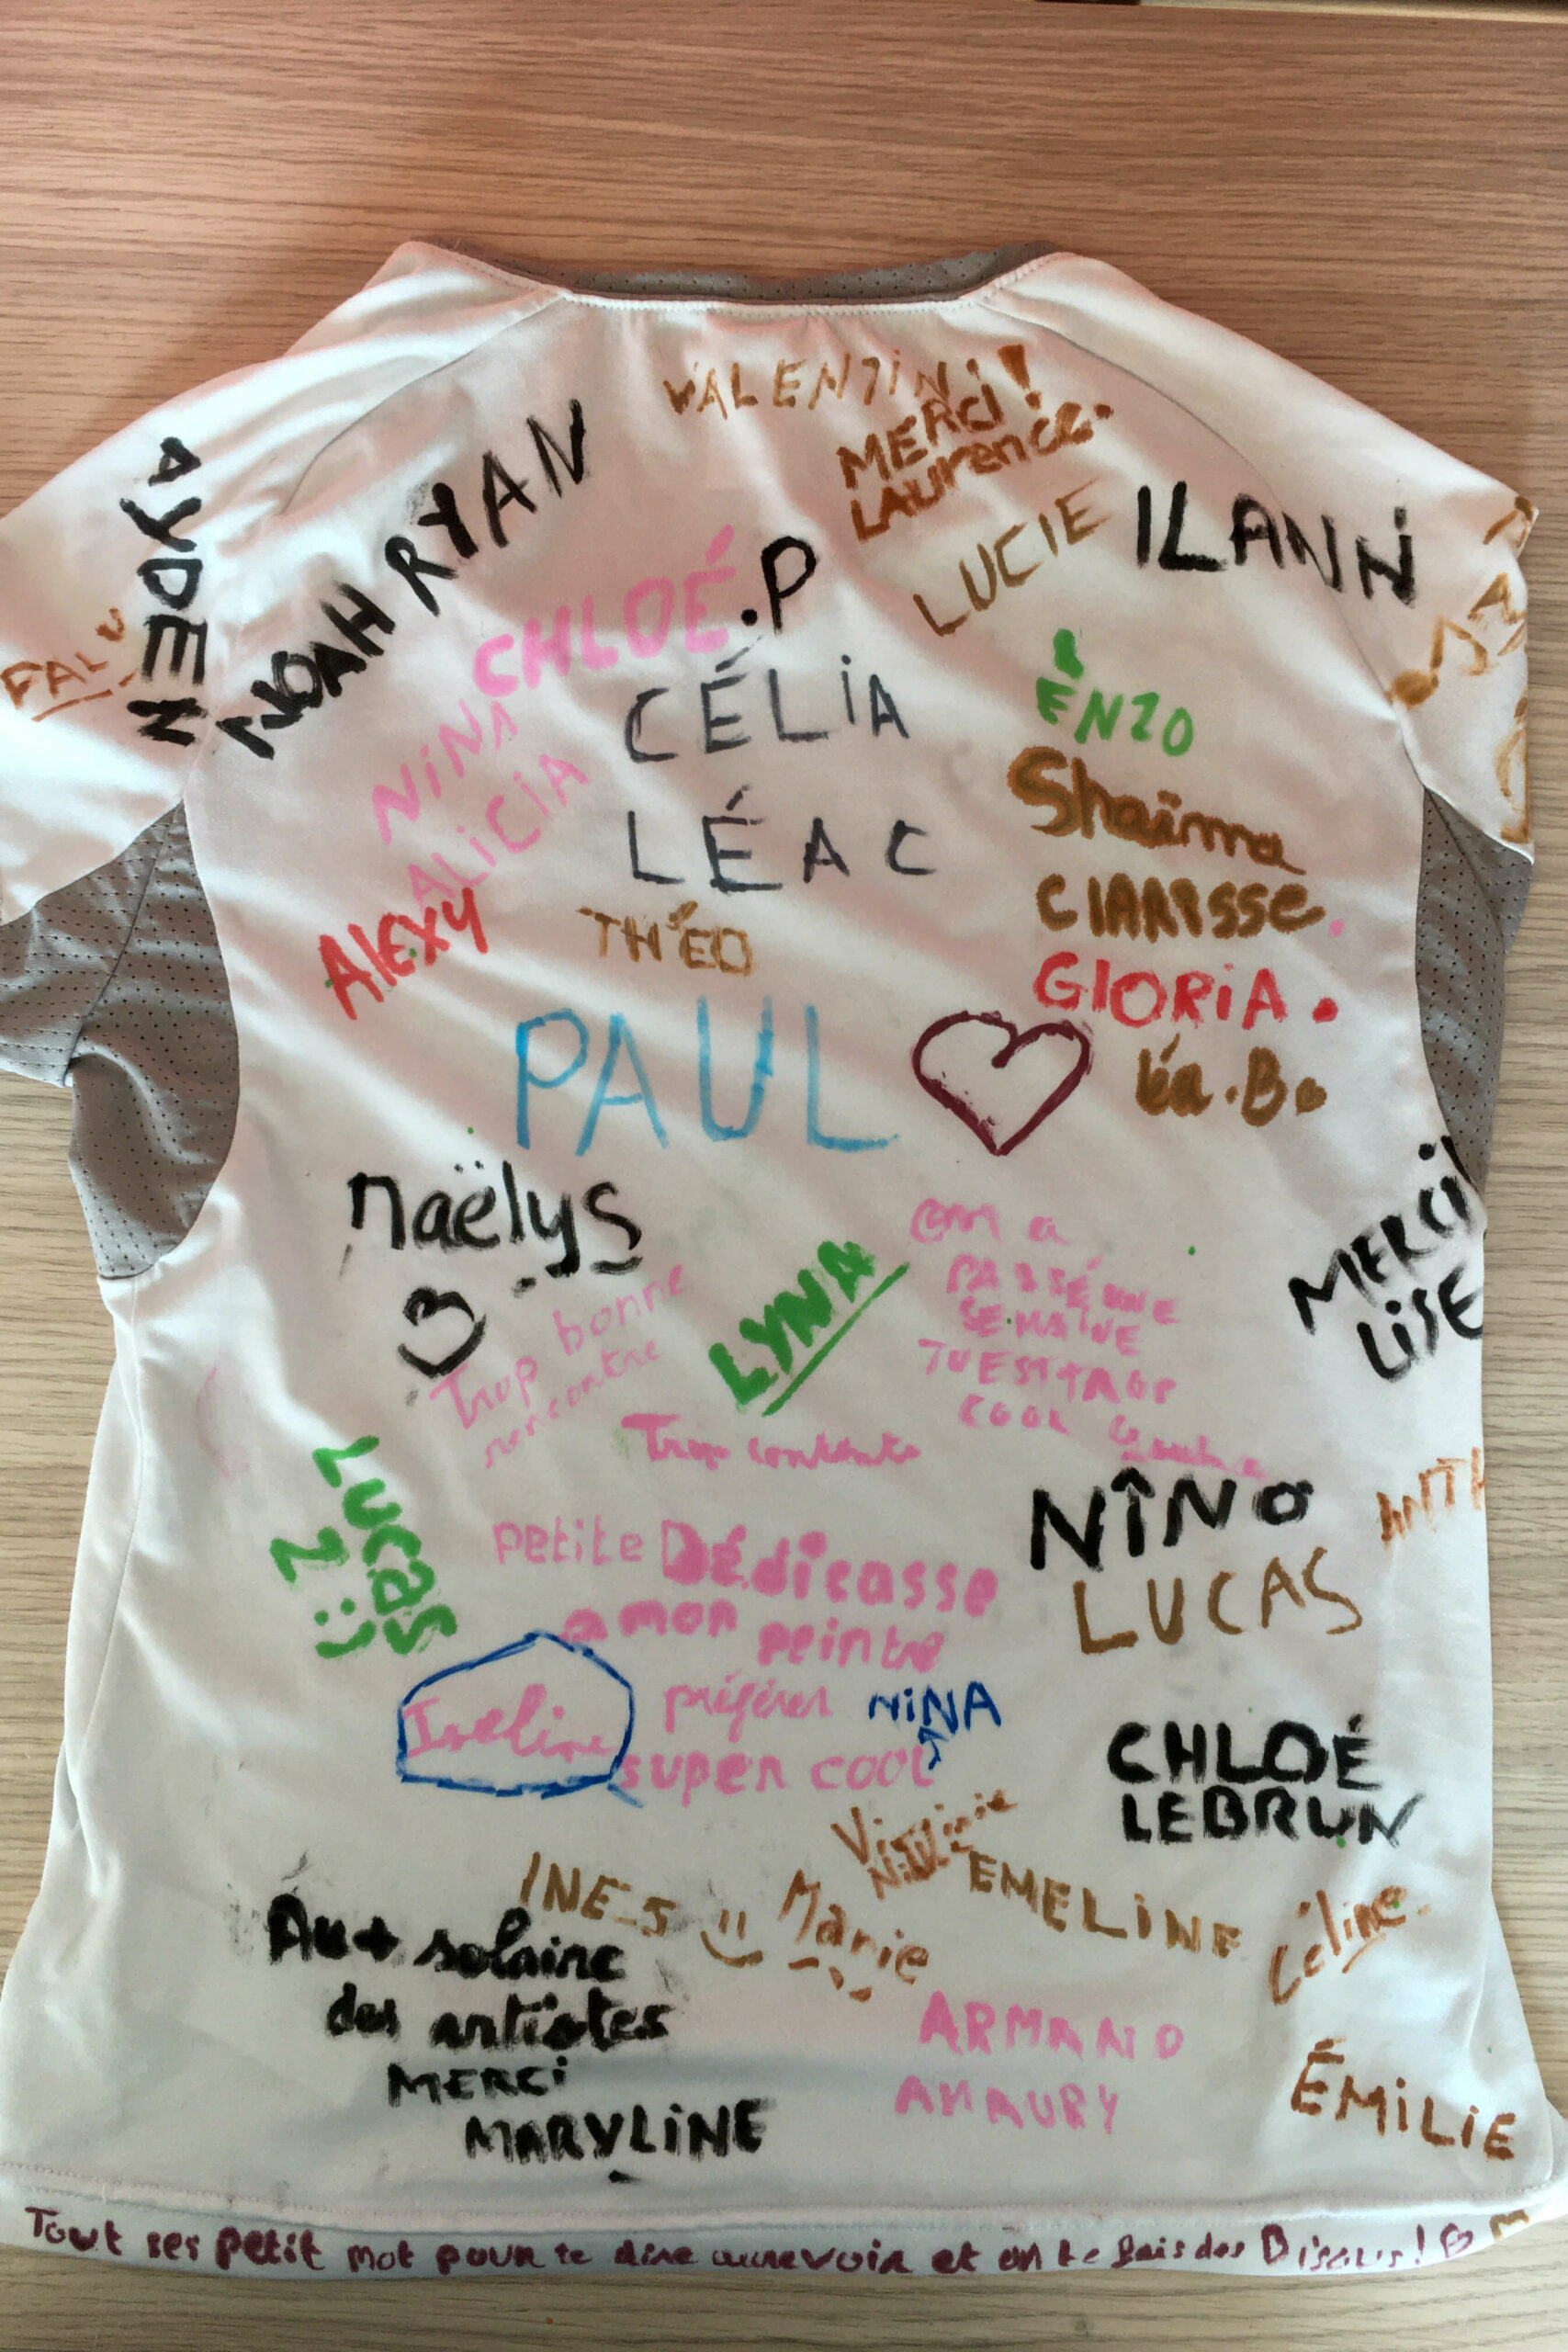 VALENTIN
MERCI !
LAurence.
AYDEN
NOAH RYAN
LUCIE
ILANN
CHLOÉ.P
CÉLIA
ENZO
NINA
ALICIA
LÉA C
Shaïma
CLARISSE.
ALEXY
THÉO
GLORIA.
PAUL
Léa.B.
Maëlys
MERCI
LISE
Trop bonne
rencontre
LYNA
on a
PASSÉ UNE
SEMAINE
TU EST TROP
COOL
Trop contente
LUCAS
NÎNO
LUCAS
Petite Dédicasse
a mon peintre
préférer NINA
super cool
CHLOÉ
LEBRUN
Virginie
INES
Marie
EMELINE
Céline.
Au + solaire
des artistes
MERCI
MARYLINE
ARMAND
AMAURY
ÉMILIE
Tout ses petit mot pour te dire aurevoir et on te fais des Bisous !